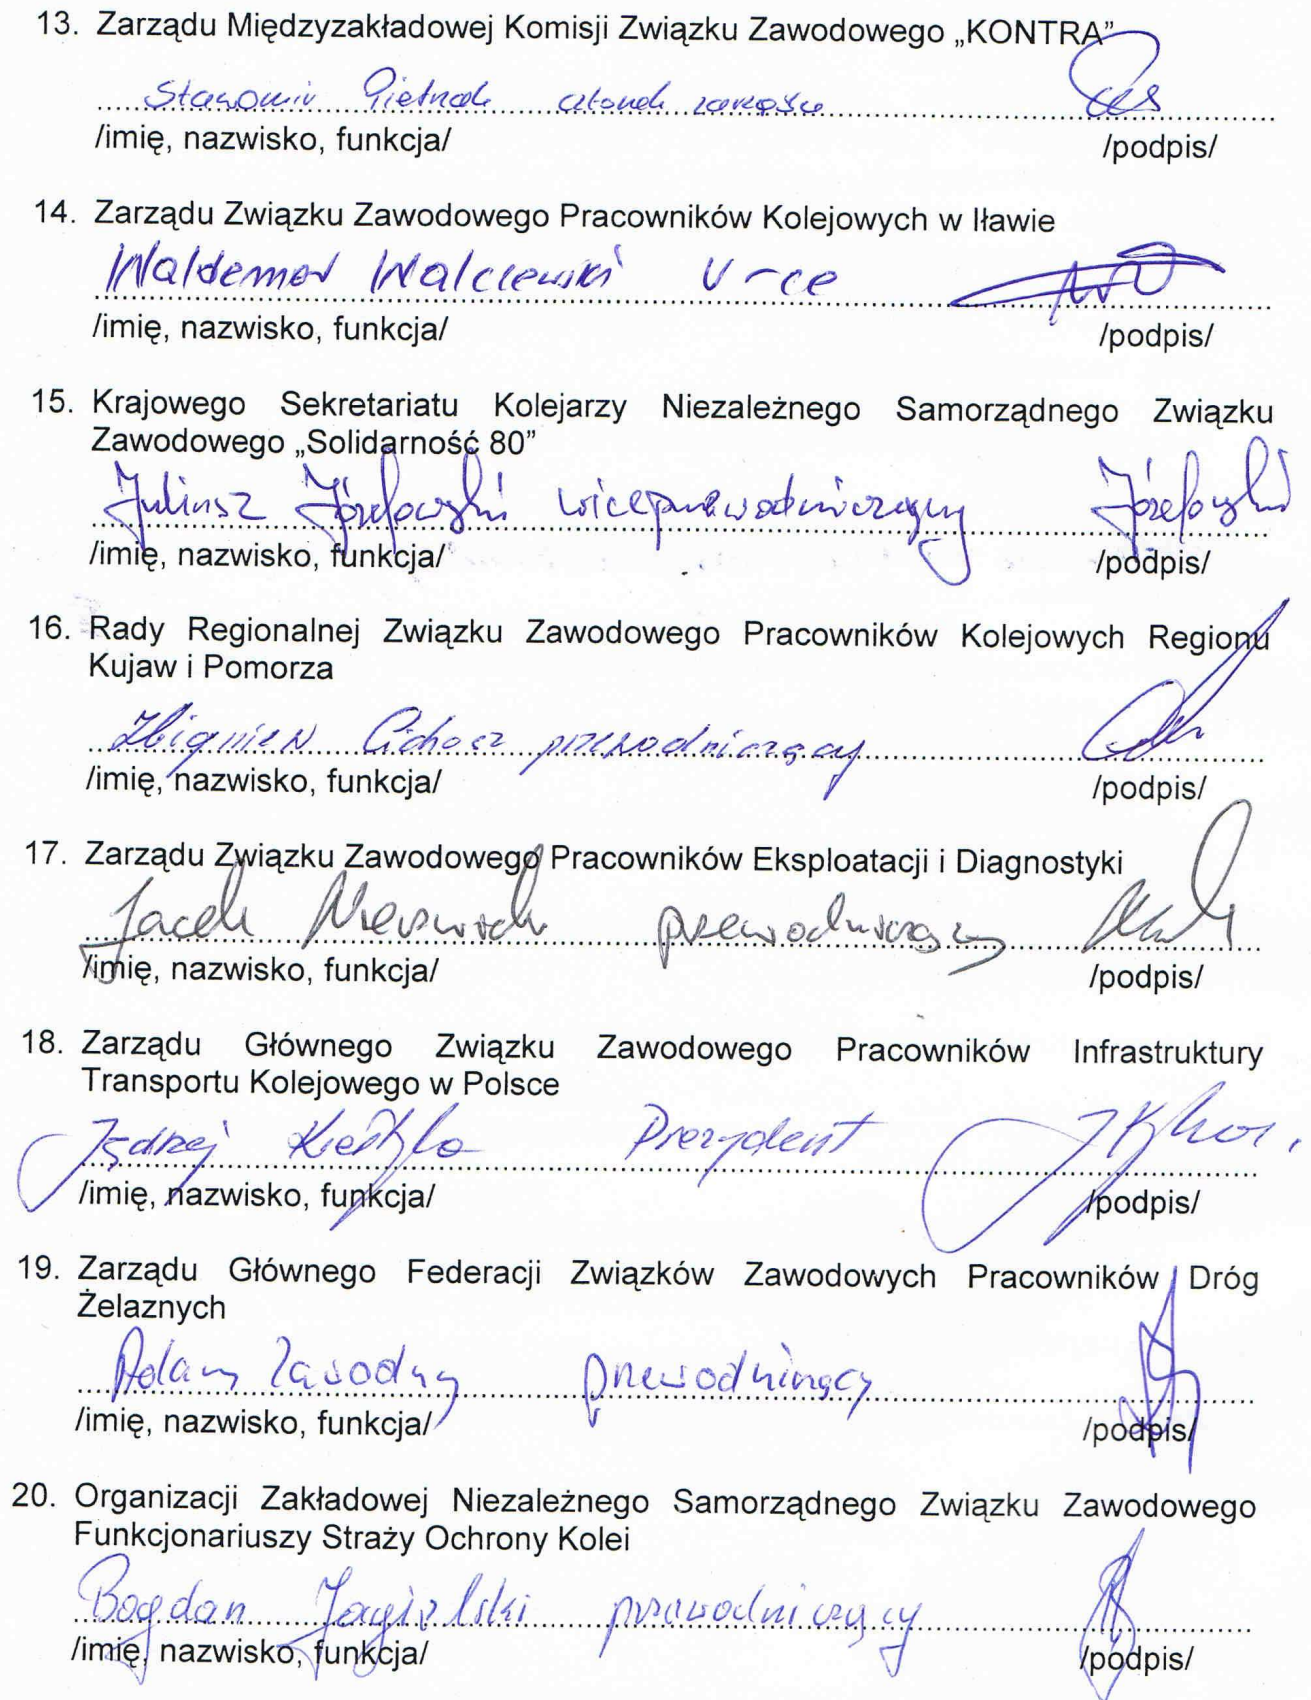 13. Zarządu Międzyzakładowej Komisji Związku Zawodowego „KONTRA”
Sławomir Pietrzak członek zarządu
/imię, nazwisko, funkcja/ /podpis/
14. Zarządu Związku Zawodowego Pracowników Kolejowych w Iławie
Waldemar Walczewski V-ce
/imię, nazwisko, funkcja/ /podpis/
15. Krajowego Sekretariatu Kolejarzy Niezależnego Samorządnego Związku
Zawodowego „Solidarność 80”
Juliusz Józefowski wiceprzewodniczący Józefowski
/imię, nazwisko, funkcja/ /podpis/
16. Rady Regionalnej Związku Zawodowego Pracowników Kolejowych Regionu
Kujaw i Pomorza
Zbigniew Cichosz przewodniczący
/imię, nazwisko, funkcja/ /podpis/
17. Zarządu Związku Zawodowego Pracowników Eksploatacji i Diagnostyki
Jacek przewodniczący
/imię, nazwisko, funkcja/ /podpis/
18. Zarządu Głównego Związku Zawodowego Pracowników Infrastruktury
Transportu Kolejowego w Polsce
Jędrzej Prezydent
/imię, nazwisko, funkcja/ /podpis/
19. Zarządu Głównego Federacji Związków Zawodowych Pracowników Dróg
Żelaznych
Adam Zawodny przewodniczący
/imię, nazwisko, funkcja/ /podpis/
20. Organizacji Zakładowej Niezależnego Samorządnego Związku Zawodowego
Funkcjonariuszy Straży Ochrony Kolei
Bogdan Jagielski przewodniczący
/imię, nazwisko, funkcja/ /podpis/